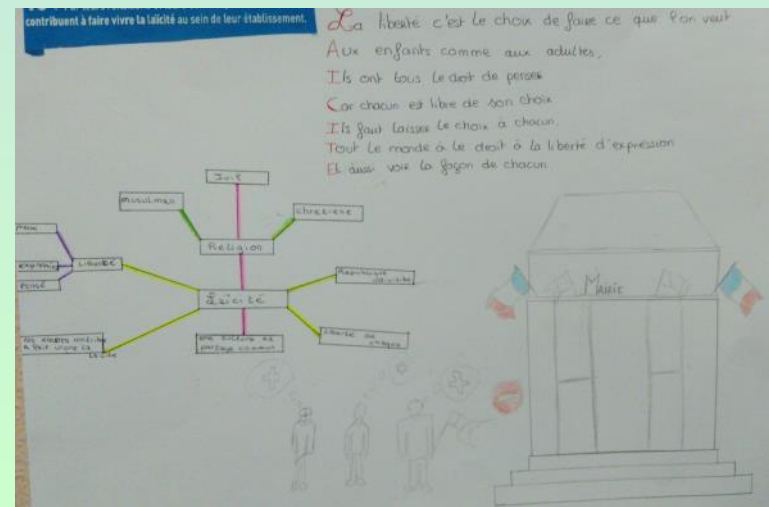 contribuent à faire vivre la laïcité au sein de leur établissement.
La liberté c'est le choix de faire ce que l'on veut
Aux enfants comme aux adultes.
Ils ont tous le droit de penser
Car chacun est libre de son choix
Ils faut laisser le choix à chacun.
Tout le monde à le droit à la liberté d'expression
Et aussi voir la façon de chacun
Juif
musulman
chretiene
Religion
Liberté
expression
Laïcité
une culture et
partage commun
Liberté de
Mairie